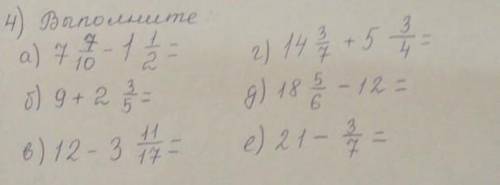 4) Выполните
а) 7 7/10 - 1 1/2 =
б) 9 + 2 3/5 =
в) 12 - 3 11/17 =
г) 14 3/7 + 5 3/4 =
д) 18 5/6 - 12 =
е) 21 - 3/7 =